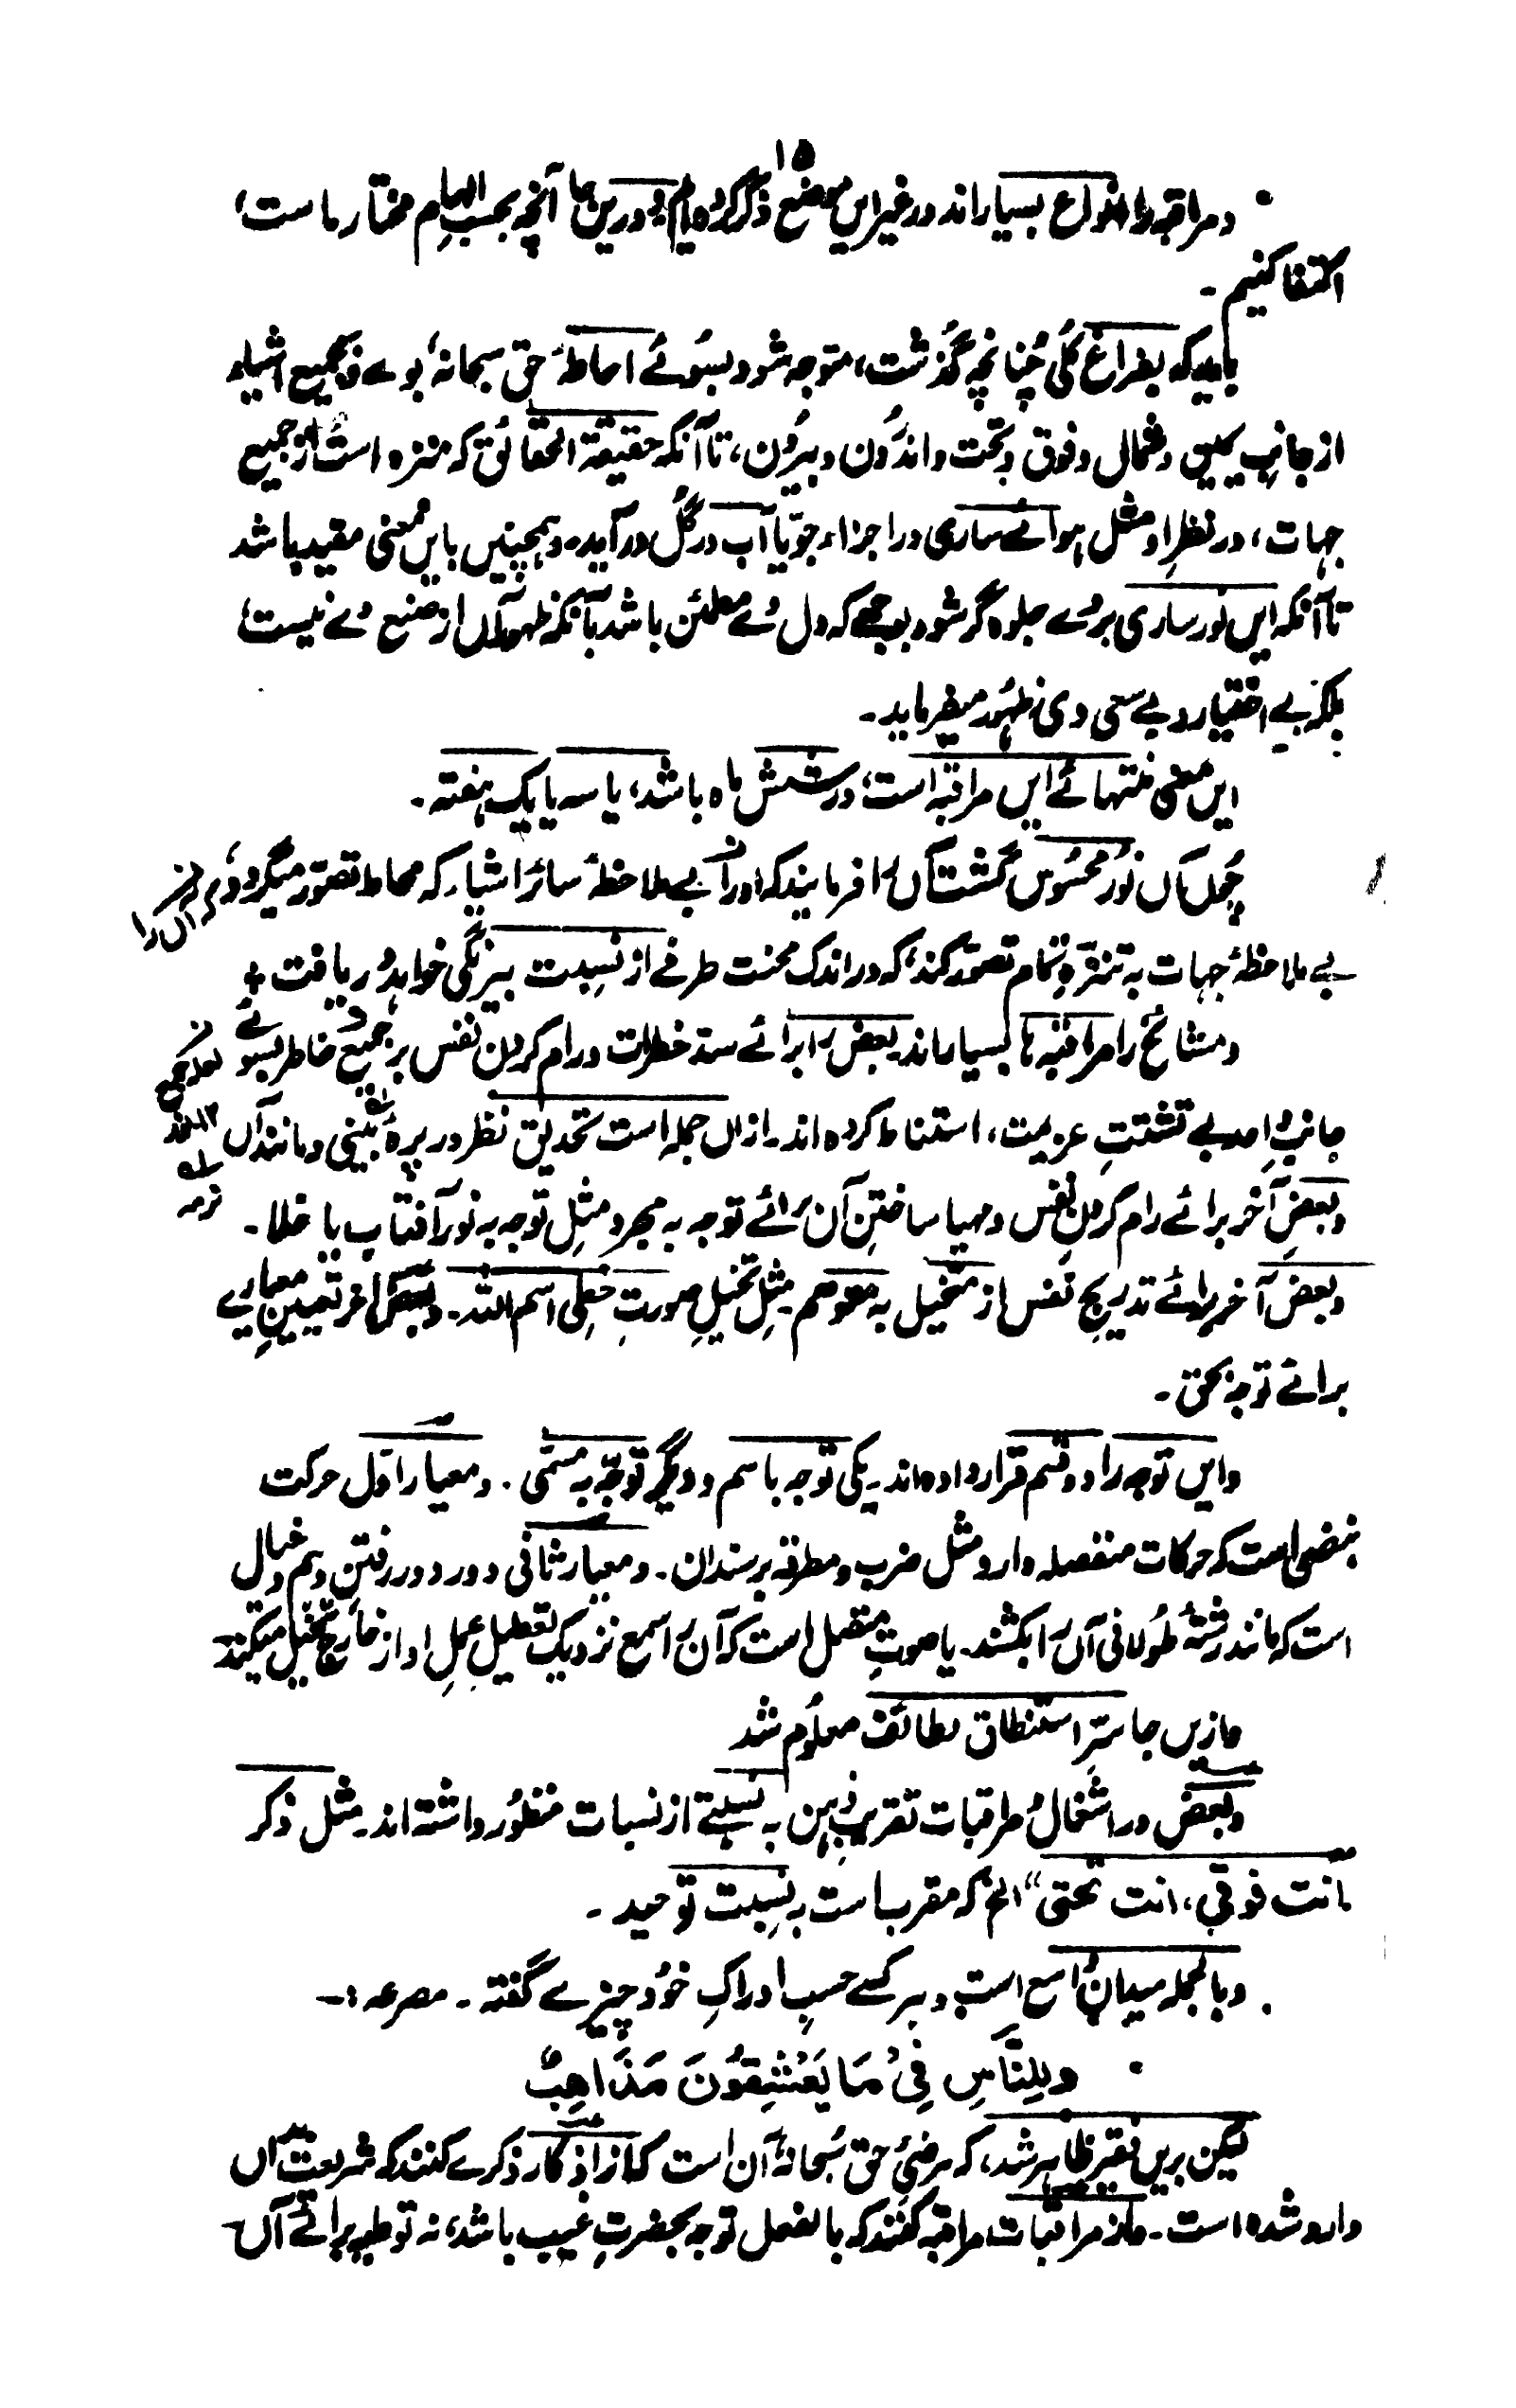 ۱۵
ومراقبہ را انواع بسیار اند در غیر ایں موضع ذکر کردہ ایم و دریں جا آنچہ بحسب الہام مختار ماست،
اکتفا کنیم۔
باید کہ بفراغ کلی چنانچہ گذشت، متوجہ شود بسوئے احاطۂ حق سبحانہ، بوے و بجمیع اشیاء
از جانب یمین و شمال و فوق و تحت و اندرون و بیرون، تا آنکہ حقیقۃ الحقائق کہ منزہ است از جمیع
جہات، در نظر او مثل ہوائے ساری در اجزاء جو یا آب در گل در آید۔ و ہمچنیں بایں معنی مقید باشد
تا آنکہ ایں نور ساری بروے جلوہ گر شود بوجہے کہ دل وے مطمئن باشد بآنکہ ظہور آں از صنع وے نیست،
بلکہ بے اختیار و بے سعی وی ظہور میفرماید۔
ایں معنی منتہائے ایں مراقبہ است، در شش ماہ باشد، یا سہ یا یک ہفتہ۔
چوں آں نور محسوس گشت آں را فرمایند کہ او را بے ملاحظۂ سائر اشیاء کہ محاط تصور میگردد،
آں را
بے ملاحظۂ جہات بہ تنزہ تمام تصور کند، کہ در اندک محنت طرفے از نسبت بیرنگی خواہد دریافت +
و مشائخ را مراقبہ ہا بسیار اند۔ بعض را برائے سد خطرات و رام کردن نفس بر جمع خاطر بسوئے
جانب واحد بے تشتت عزیمت، استنباط کردہ اند۔ ازاں جملہ است تحدیق نظر در پرۂ بینی و مانند آں
نرمہ
و بعض آخر برائے رام کردن نفس و مہیا ساختن آن برائے توجہ بہ مجرد مثل توجہ بہ نور آفتاب یا خلا۔
و بعض آخر برائے تدریج نفس از متخیل بہ موہوم۔ مثل تخیل صورت خطی اسم اللہ۔ و بعض آخر تعیین معیارے
برائے توجہ بحق۔
وایں توجہ را دو قسم قرار دادہ اند۔ یکی توجہ باسم و دیگر توجہ بہ مسمی۔ و معیار اول حرکت
نبضی است کہ حرکات منفصلہ دارد مثل ضرب و مطرقہ بر سندان۔ و معیار ثانی دور دور رفتن وہم و خیال
است کہ مانند رشتۂ طولانی آں را بکشند۔ یا صوت متصل است کہ آن را سمع نزدیک تعطیل عمل او از خارج تخیل میکند
و ازیں جا سر استنطاق لطائف معلوم شد
و بعض در اشغال و مراقبات تقریب ذہن بہ نسبتے از نسبات منظور داشتہ اند۔ مثل ذکر
انت فوقی، انت تحتی“ الخ کہ مقرب است بہ نسبت توحید۔
و بالجملہ میدان واسع است و ہر کسے حسب ادراک خود چیزے گفتہ۔ مصرعہ :۔
وَلِلنَّاسِ فِیْ مَا یَعْشِقُوْنَ مَذَاھِبٌ
لیکن بریں فقیر ظاہر شد، کہ مرضئ حق سبحانہ آن است کہ از اذکار ذکرے کنند کہ شریعت بآں
وارد شدہ است۔ و از مراقبات، مراقبہ کنند کہ بالفعل توجہ بحضرت غیب باشد، نہ توطیہ برائے آں